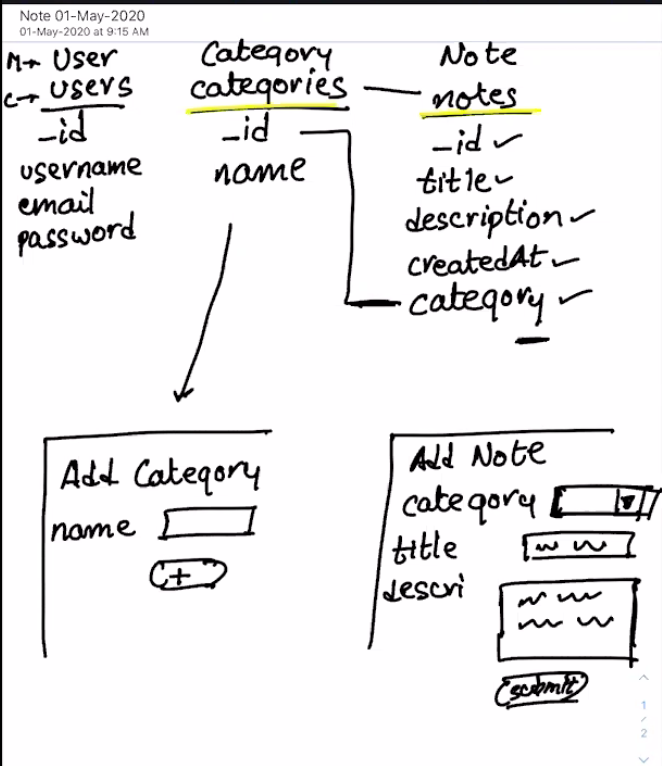 Note 01-May-2020
01-May-2020 at 9:15 AM
M→ User
C→ users
_id
username
email
password
Category
categories
_id
name
Note
notes
_id ✓
title ✓
description ✓
createdAt ✓
category ✓
Add Category
name
+
Add Note
category
title
descri
submit
1
/
2